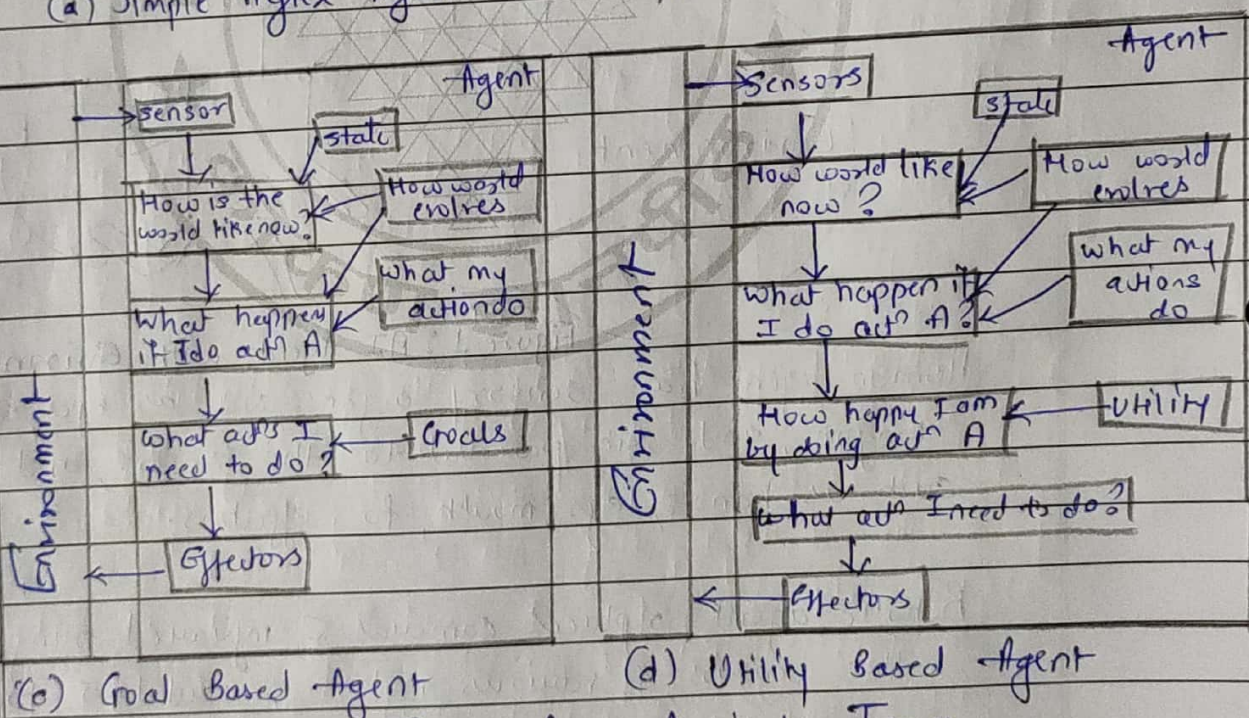 (a) Simple
Agent
sensor
state
How is the
world like now?
How world
evolves
What my
action do
What happens
if I do actn A
What actns I
need to do?
Goals
Effectors
Environment
(c) Goal Based Agent
Agent
Sensors
state
How world like
now ?
How world
evolves
What my
actions
do
What happen if
I do actn A?
How happy I am
by doing actn A
Utility
What actn I need to do?
Effectors
Environment
(d) Utility Based Agent